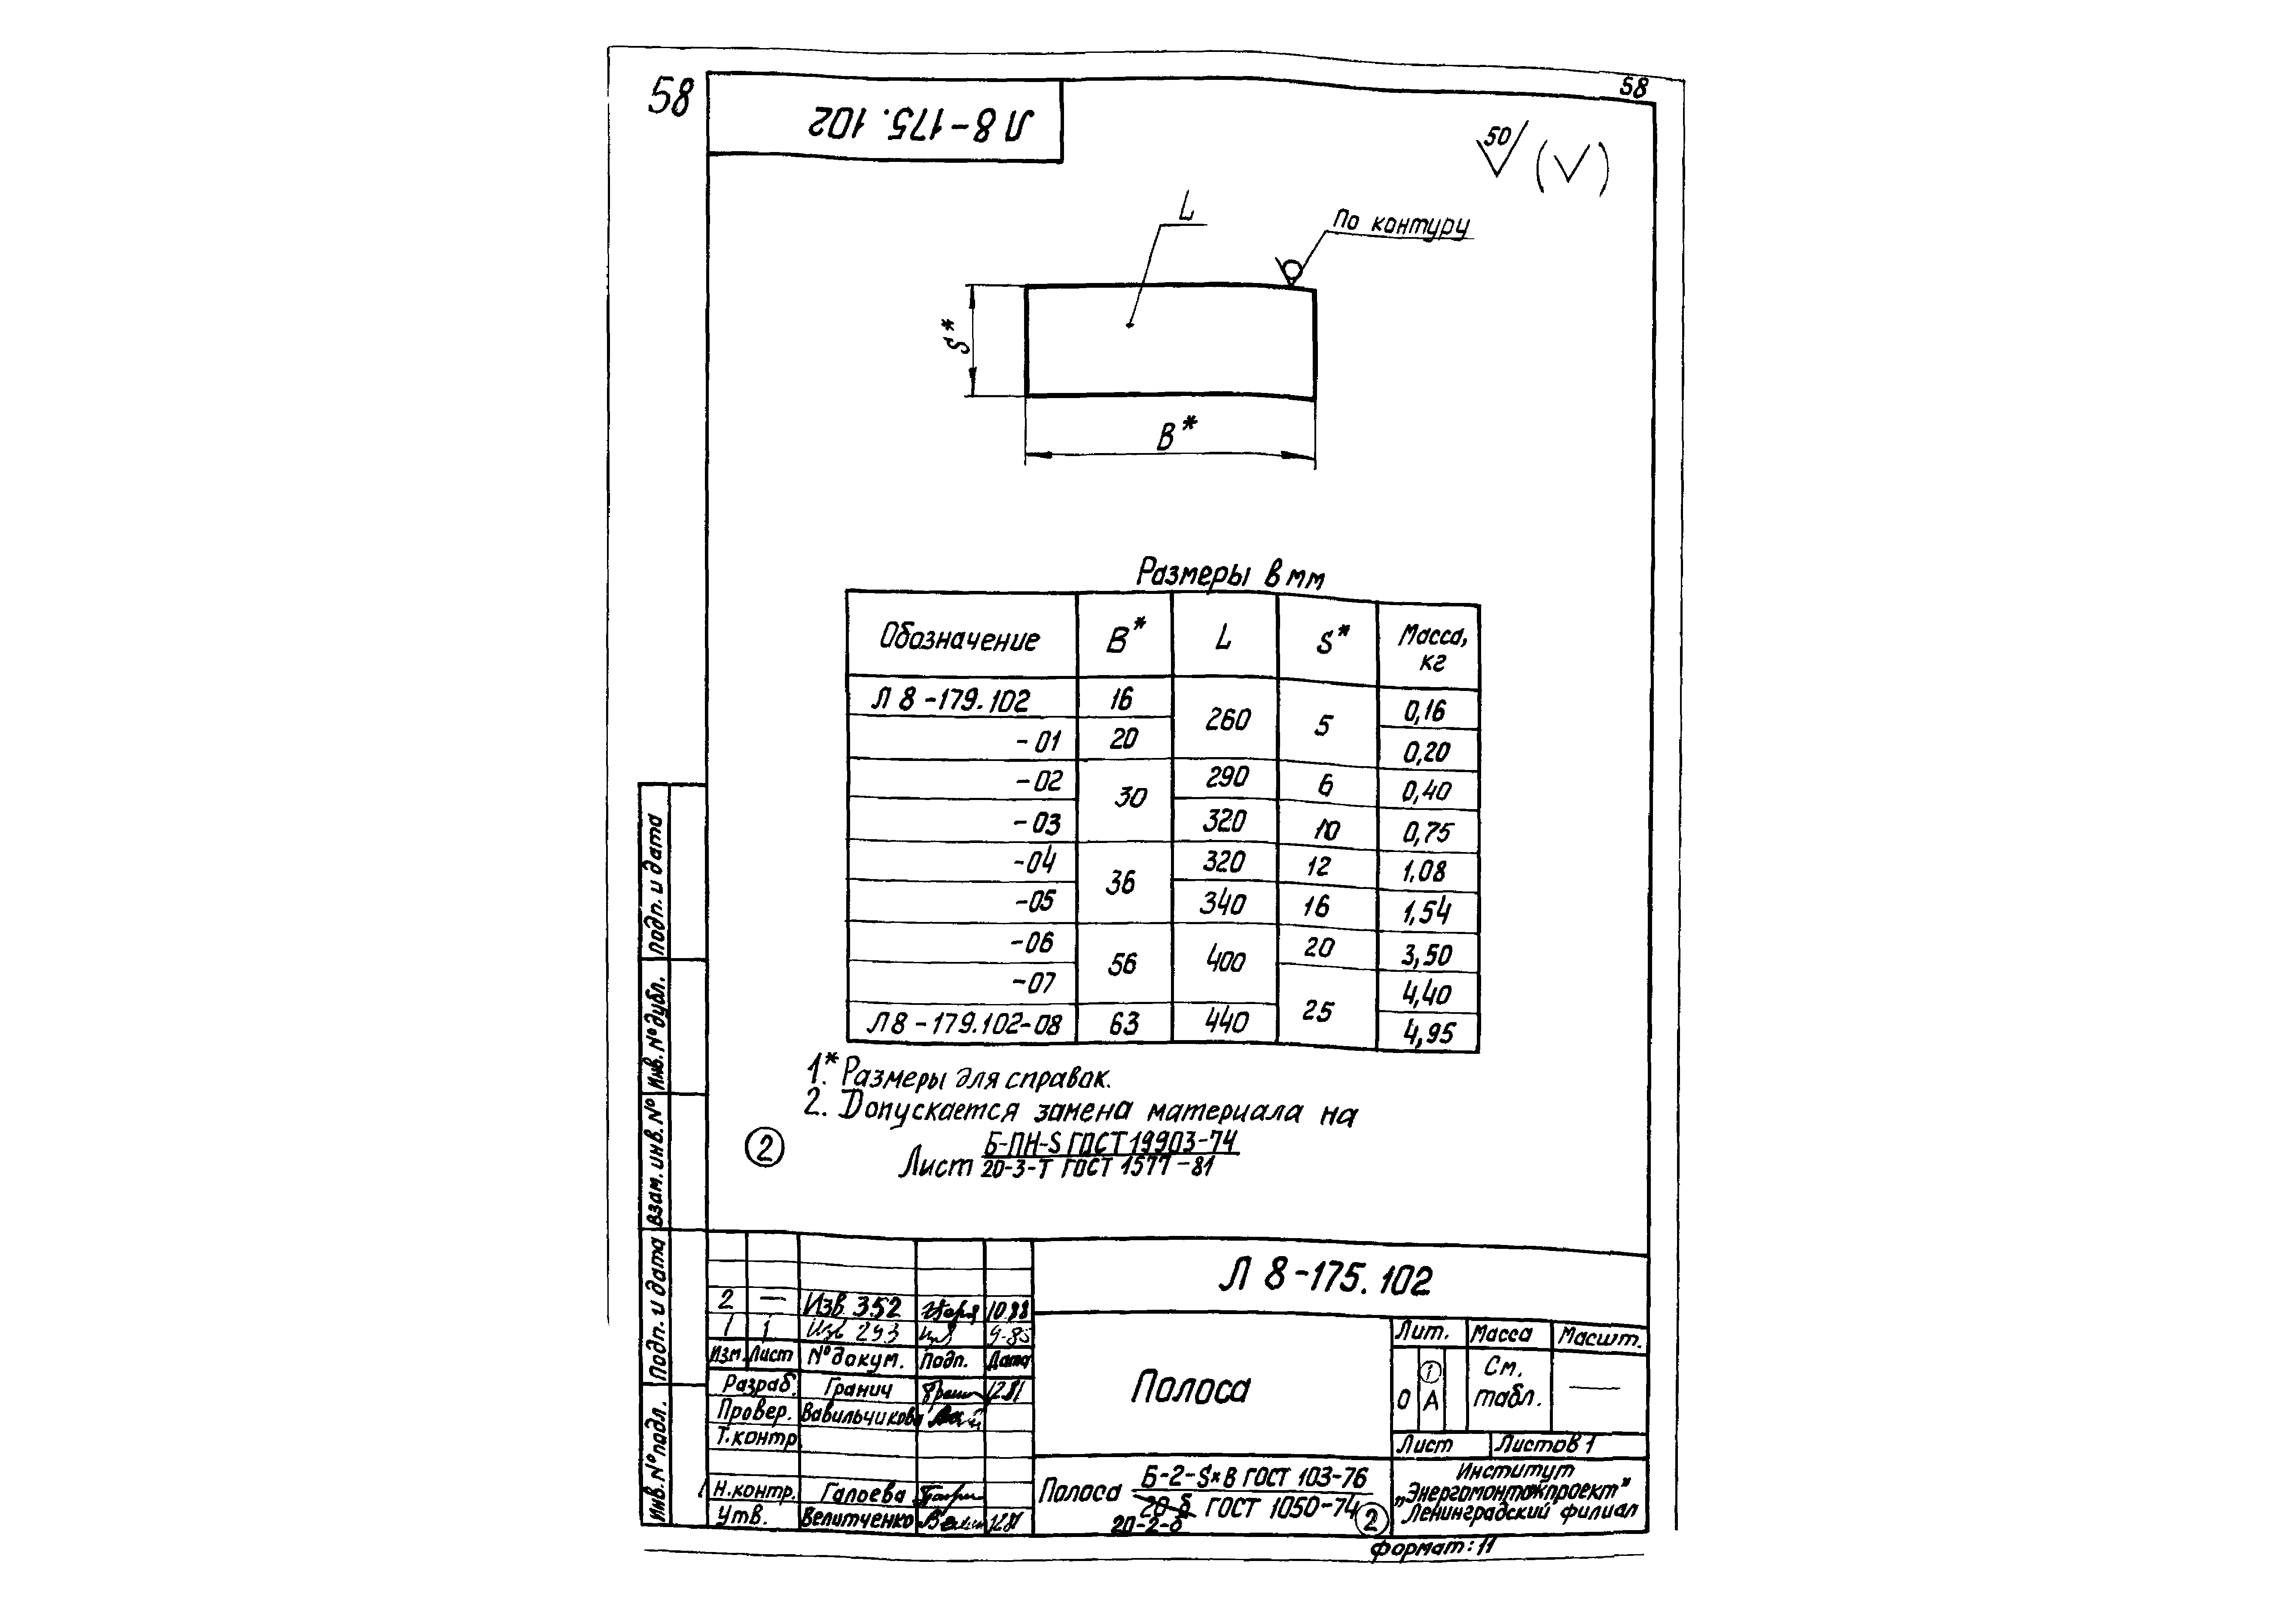 58
58
Л 8-175.102
50 (√)
L
По контуру
S*
B*
Размеры в мм
Обозначение B* L S* Масса, кг
Л 8-179.102 16 260 5 0,16
-01 20 0,20
-02 30 290 6 0,40
-03 320 10 0,75
-04 36 320 12 1,08
-05 340 16 1,54
-06 56 400 20 3,50
-07 25 4,40
Л 8-179.102-08 63 440 4,95
1.* Размеры для справок.
2. Допускается замена материала на
2
Лист Б-ПН-S ГОСТ 19903-74
20-3-Т ГОСТ 1577-81
Подп. и дата
Инв. № дубл.
Взам. инв. №
Подп. и дата
Инв. № подл.
Л 8-175.102
2 — Изв. 352 10.88
1 1 Изв 293
Изм. Лист № докум. Подп. Дата
Разраб. Гранич 12.81
Провер. Вавильчикова
Т.контр
Н.контр. Галоева
Утв. Велитченко
Полоса
Лит. Масса Масшт.
1
О А См. табл. —
Лист Листов 1
Полоса Б-2-S×B ГОСТ 103-76
20-б ГОСТ 1050-74
20-2-б
2
Институт
„Энергомонтажпроект"
Ленинградский филиал
формат: 11